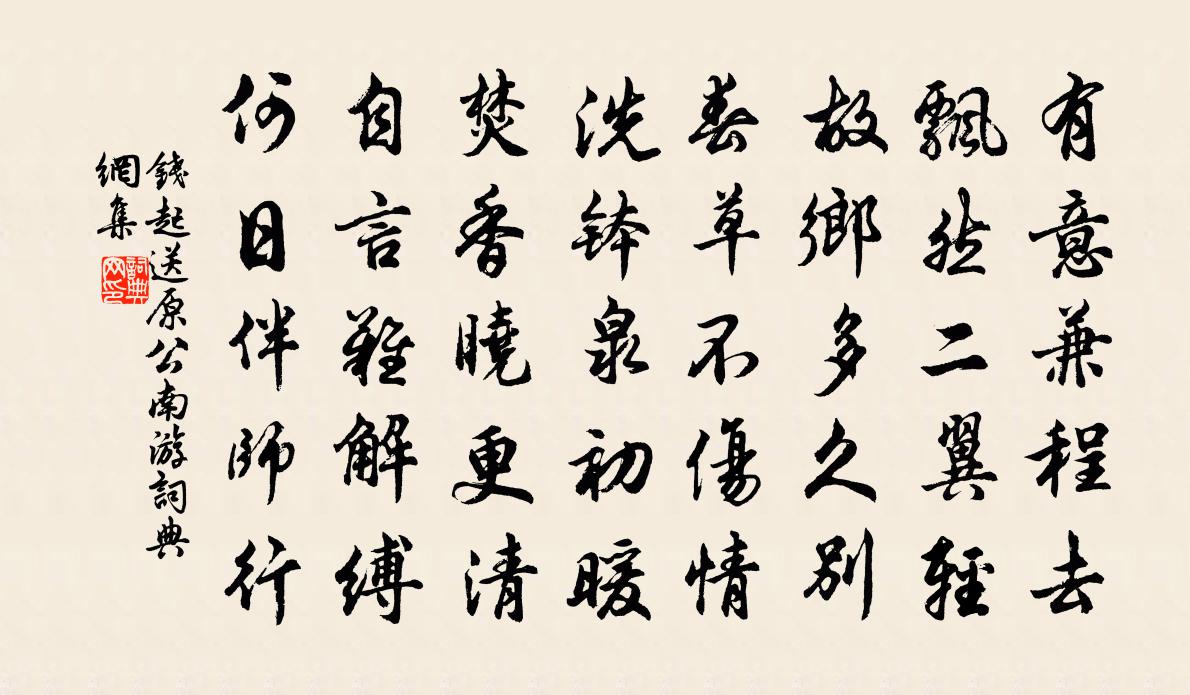 有意兼程去
飄然二翼輕
故鄉多久別
春草不傷情
洗鉢泉初暖
焚香曉更清
自言難解縛
何日伴師行
錢起送原公南游詞典
網集
詞典
网印